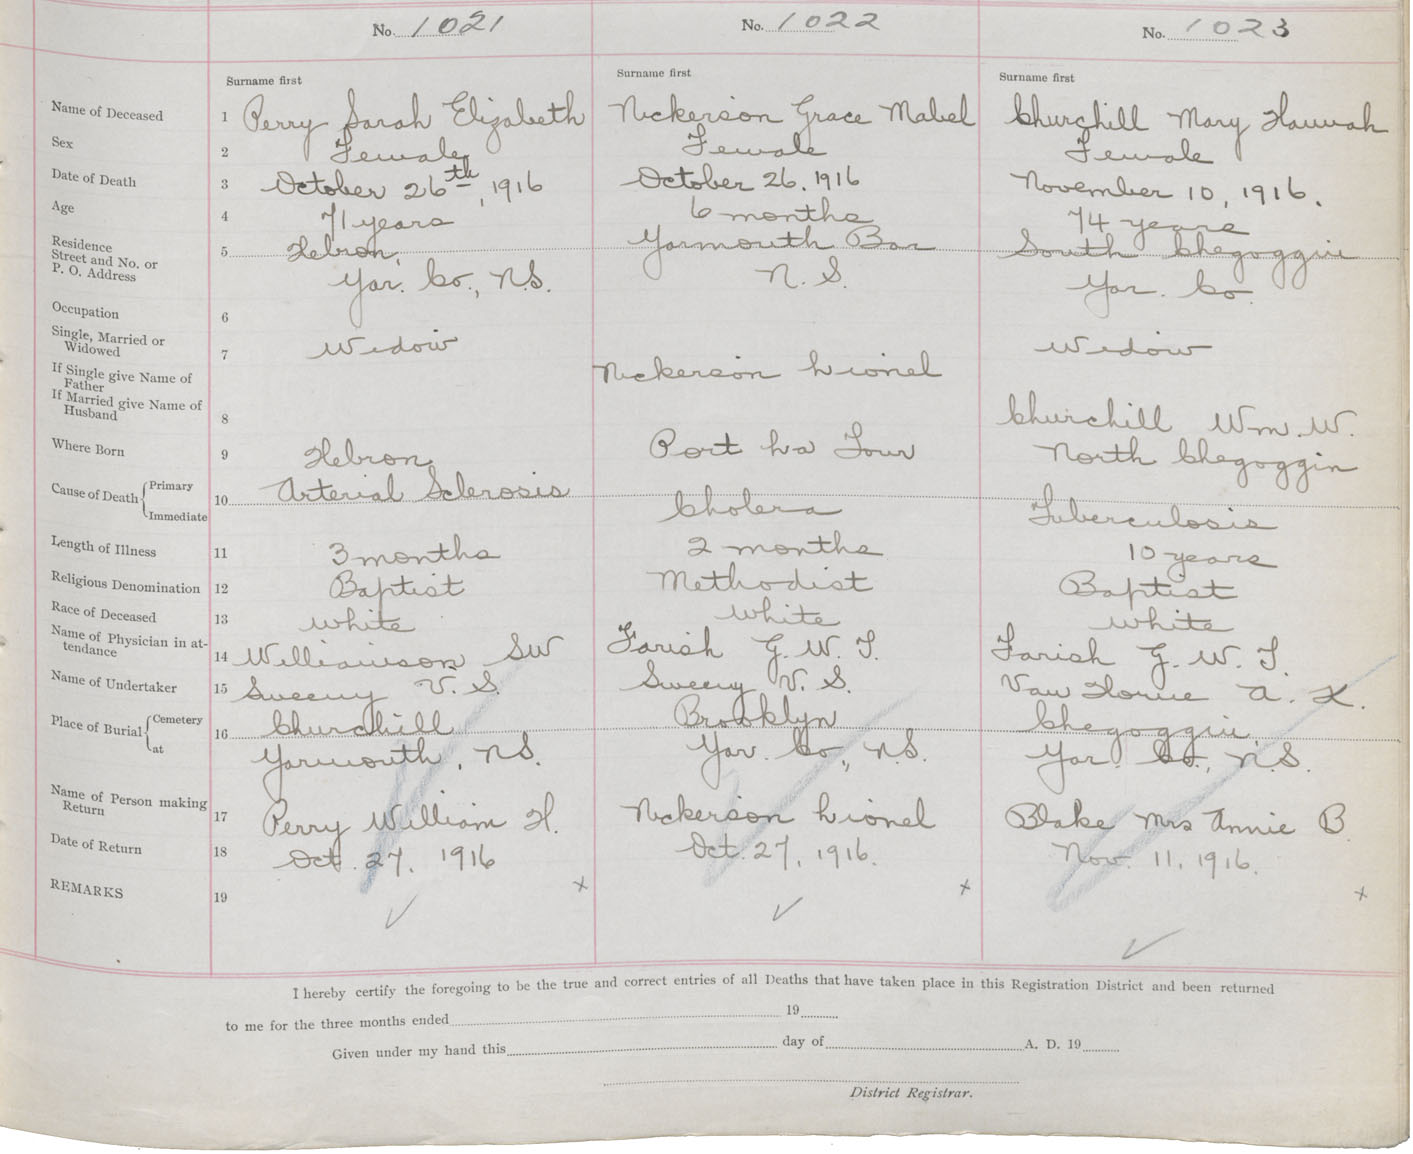 No. 1021 No. 1022 No. 1023
Surname first Surname first Surname first
Name of Deceased 1 Perry Sarah Elizabeth Nickerson Grace Mabel Churchill Mary Hannah
Sex 2 Female Female Female
Date of Death 3 October 26th, 1916 October 26, 1916 November 10, 1916.
Age 4 71 years 6 months 74 years
Residence
Street and No. or
P. O. Address
5 Hebron, Yarmouth Bar South Chegoggin
Yar. Co., N.S. N. S. Yar. Co.
Occupation 6
Single, Married or
Widowed 7 Widow Widow
If Single give Name of
Father Nickerson Lionel
If Married give Name of
Husband 8 Churchill Wm. W.
Where Born 9 Hebron Port La Tour North Chegoggin
Cause of Death Primary 10 Arterial Sclerosis
Immediate Cholera Tuberculosis
Length of Illness 11 3 months 2 months 10 years
Religious Denomination 12 Baptist Methodist Baptist
Race of Deceased 13 white white white
Name of Physician in at-
tendance 14 Williamson SW Farish G. W. T. Farish G. W. T.
Name of Undertaker 15 Sweeny V. S. Sweeny V. S. Van Horne A. K.
Place of Burial Cemetery 16 Churchill Brooklyn Chegoggin
at Yarmouth, N.S. Yar. Co., N.S. Yar. Co., N.S.
Name of Person making
Return 17 Perry William H. Nickerson Lionel Blake Mrs Annie B.
Date of Return 18 Oct. 27, 1916 Oct. 27, 1916. Nov. 11, 1916.
REMARKS 19 x x x
I hereby certify the foregoing to be the true and correct entries of all Deaths that have taken place in this Registration District and been returned
to me for the three months ended 19
Given under my hand this day of A. D. 19
District Registrar.